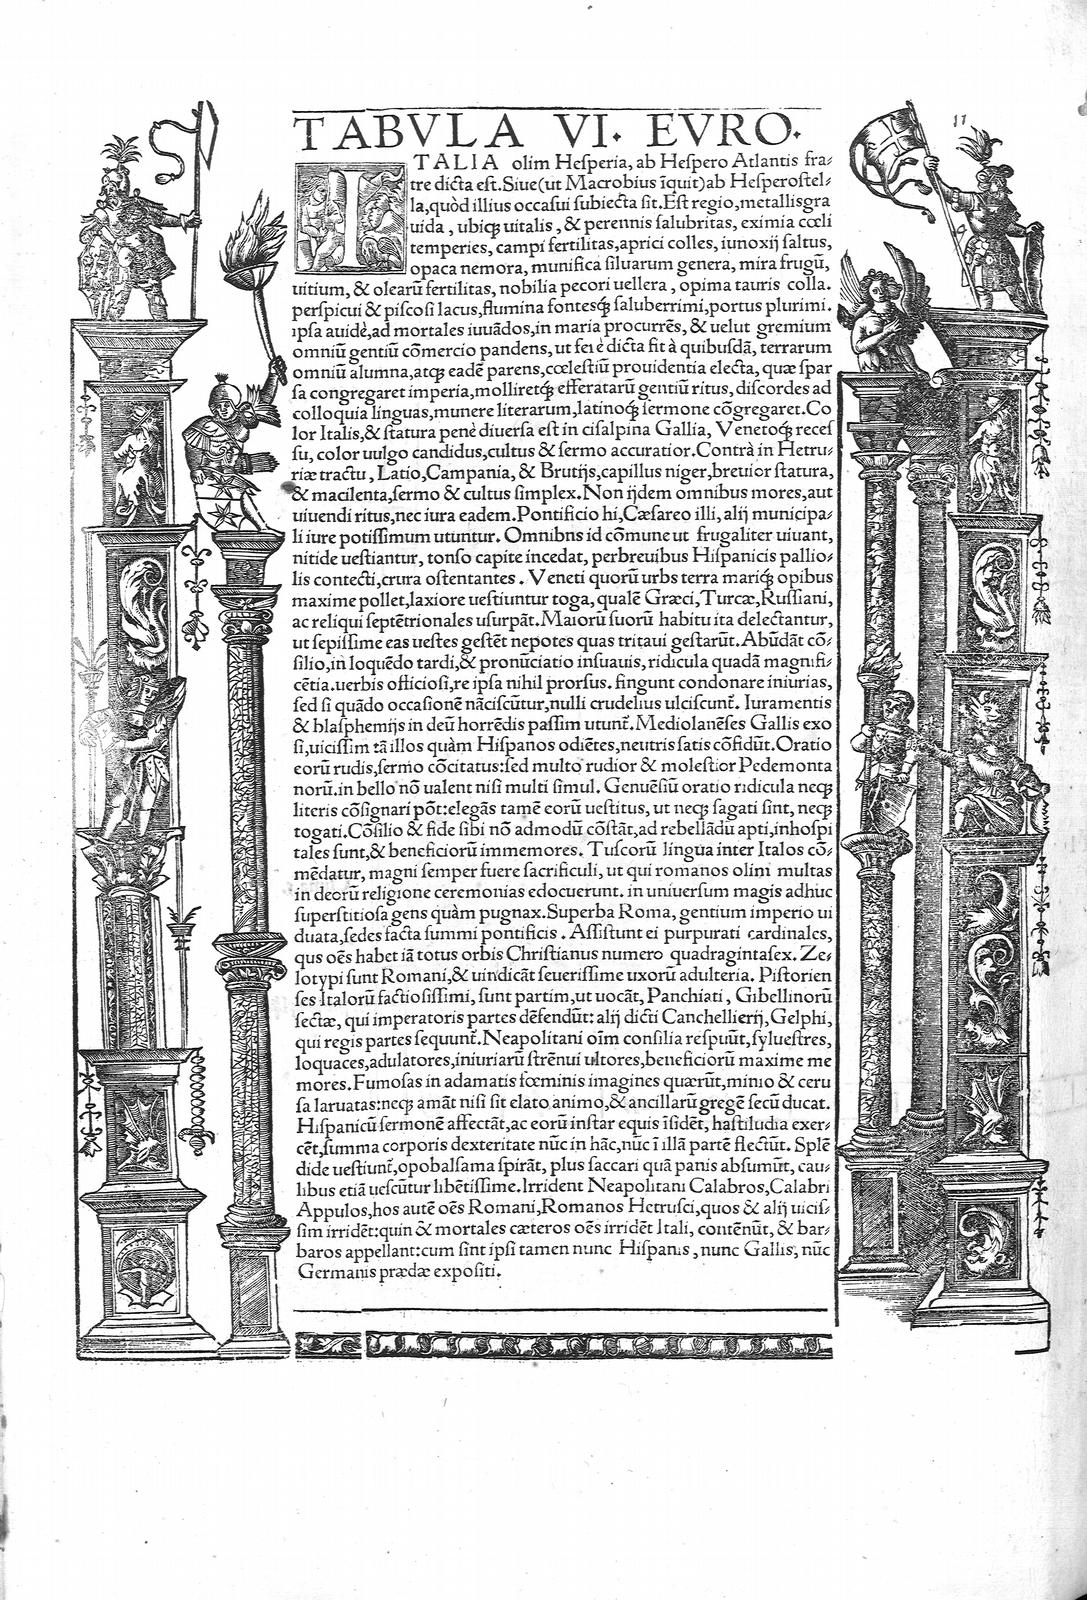 11
TABVLA VI. EVRO.
ITALIA olim Hesperia, ab Hespero Atlantis fra-
tre dicta est. Siue(ut Macrobius īquit)ab Hesperostel-
la,quòd illius occasui subiecta sit. Est regio,metallisgra
uida, ubiq; uitalis, & perennis salubritas, eximia cœli
temperies, campi fertilitas,aprici colles, iunoxij saltus,
opaca nemora, munifica siluarum genera, mira frugū,
uitium, & olearū fertilitas, nobilia pecori uellera, opima tauris colla.
perspicui & piscosi lacus,flumina fontesq; saluberrimi,portus plurimi.
ipsa auidè,ad mortales iuuādos,in maria procurrēs, & uelut gremium
omniū gentiū cōmercio pandens,ut fere dicta sit à quibusdā, terrarum
omniū alumna,atq; eadē parens,cœlestiū prouidentia electa, quæ spar
sa congregaret imperia,molliretq; efferatarū gentiū ritus, discordes ad
colloquia linguas,munere literarum,latinoq; sermone cōgregaret.Co
lor Italis,& statura penè diuersa est in cisalpina Gallia, Venetoq; reces
su, color uulgo candidus,cultus & sermo accuratior.Contrà in Hetru-
riæ tractu, Latio,Campania, & Brutijs,capillus niger,breuior statura,
& macilenta,sermo & cultus simplex.Non ijdem omnibus mores,aut
uiuendi ritus,nec iura eadem.Pontificio hi,Cæsareo illi, alij municipa-
li iure potissimum utuntur. Omnibns id cōmune ut frugaliter uiuant,
nitide uestiantur, tonso capite incedat, perbreuibus Hispanicis pallio-
lis contecti,crura ostentantes. Veneti quorū urbs terra mariq; opibus
maxime pollet,laxiore uestiuntur toga, qualē Græci,Turcæ,Russiani,
ac reliqui septētrionales usurpāt.Maiorū suorū habitu ita delectantur,
ut sepissime eas uestes gestēt nepotes quas tritaui gestarūt.Abūdāt cō-
silio,in loquēdo tardi,& pronūciatio insuauis,ridicula quadā magnifi-
cētia.uerbis officiosi,re ipsa nihil prorsus. fingunt condonare iniurias,
sed si quādo occasionē nāciscūtur,nulli crudelius ulciscunt̄. Iuramentis
& blasphemijs in deū horrēdis passim utunt̄.Mediolanēses Gallis exo
si,uicissim tā illos quàm Hispanos odiētes,neutris satis cōfidūt.Oratio
eorū rudis,sermo cōcitatus:sed multo rudior & molestior Pedemonta
norū.in bello nō ualent nisi multi simul. Genuēsiū oratio ridicula neq;
literis cōsignari pōt:elegās tamē eorū uestitus, ut neq; sagati sint, neq;
togati.Cōsilio & fide sibi nō admodū cōstāt,ad rebellādū apti,inhospi
tales sunt,& beneficiorū immemores. Tuscorū lingua inter Italos cō-
mēdatur, magni semper fuere sacrificuli, ut qui romanos olim multas
in deorū religione ceremonias edocuerunt. in uniuersum magis adhuc
superstitiosa gens quàm pugnax.Superba Roma, gentium imperio ui
duata,sedes facta summi pontificis. Assistunt ei purpurati cardinales,
qus oēs habet iā totus orbis Christianus numero quadragintasex. Ze-
lotypi sunt Romani,& uindicāt seuerissime uxorū adulteria. Pistorien
ses Italorū factiosissimi, sunt partim,ut uocāt, Panchiati, Gibellinorū
sectæ, qui imperatoris partes dēfendūt: alij dicti Canchellierij,Gelphi,
qui regis partes sequunt̄.Neapolitani oīm consilia respuūt,syluestres,
loquaces,adulatores,iniuriarū strēnui ultores,beneficiorū maxime me
mores.Fumosas in adamatis fœminis imagines quærūt,minio & ceru
sa laruatas:neq; amāt nisi sit elato animo,& ancillarū gregē secū ducat.
Hispanicū sermonē affectāt,ac eorū instar equis īsidēt, hastiludia exer-
cēt,summa corporis dexteritate nūc in hāc,nūc ī illā partē flectūt. Splē
dide uestiunt̄,opobalsama spirāt, plus saccari quā panis absumūt, cau-
libus etiā uescūtur libētissime.Irrident Neapolitani Calabros,Calabri
Appulos,hos autē oēs Romani,Romanos Hetrusci,quos & alij uicis-
sim irridēt:quin & mortales cæteros oēs irridēt Itali, contēnūt, & bar-
baros appellant:cum sint ipsi tamen nunc Hispanis, nunc Gallis, nūc
Germanis prædæ expositi.